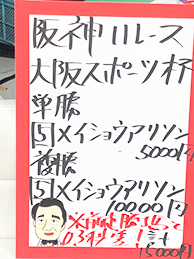 阪神11レース
大阪スポーツ杯
単勝
5メイショウアリソン
5000円
複勝
5メイショウアリソン
10000円
0.3秒差
計
15000円